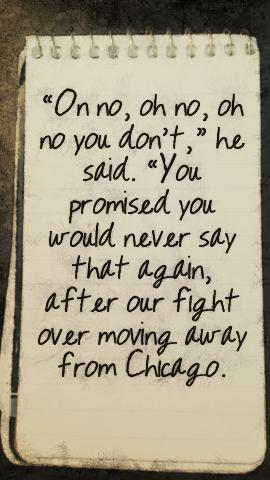 “On no, oh no, oh
no you don't,” he
said. “You
promised you
would never say
that again,
after our fight
over moving away
from Chicago.